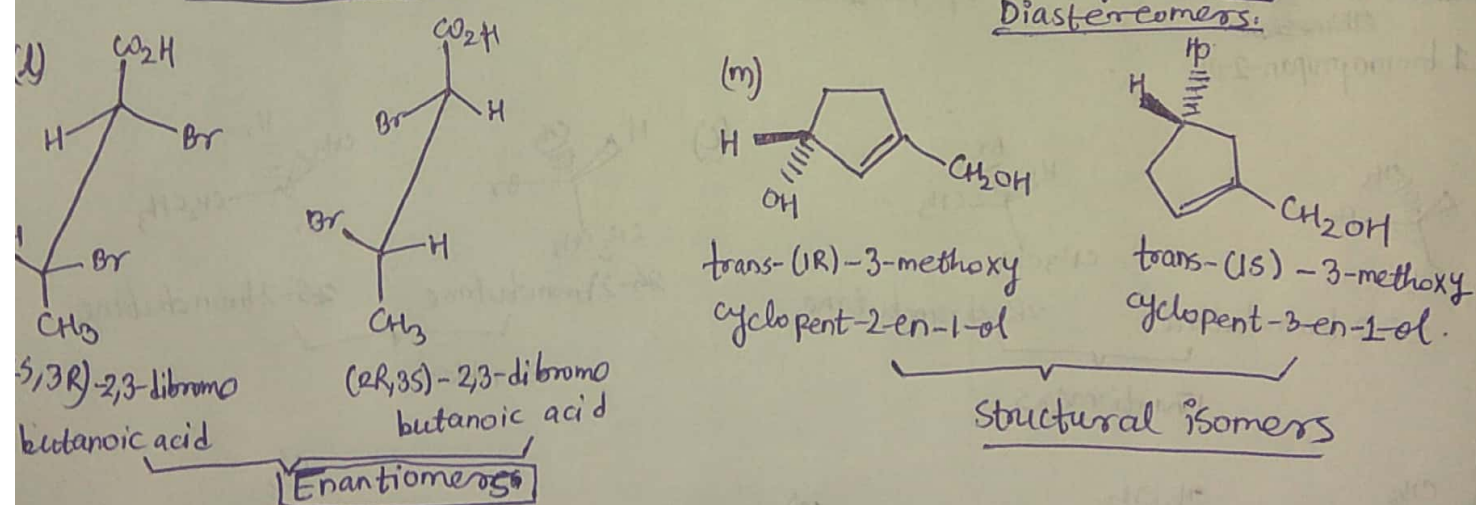 Diastereomers.
l)
CO₂H
H
Br
Br
CH₃
S,3R)-2,3-dibromo
butanoic acid
CO₂H
Br
H
Br
H
CH₃
(2R,3S)-2,3-dibromo
butanoic acid
Enantiomers
(m)
H
OH
CH₂OH
trans-(1R)-3-methoxy
cyclopent-2-en-1-ol
H
CH₂OH
trans-(1S)-3-methoxy
cyclopent-3-en-1-ol.
structural isomers